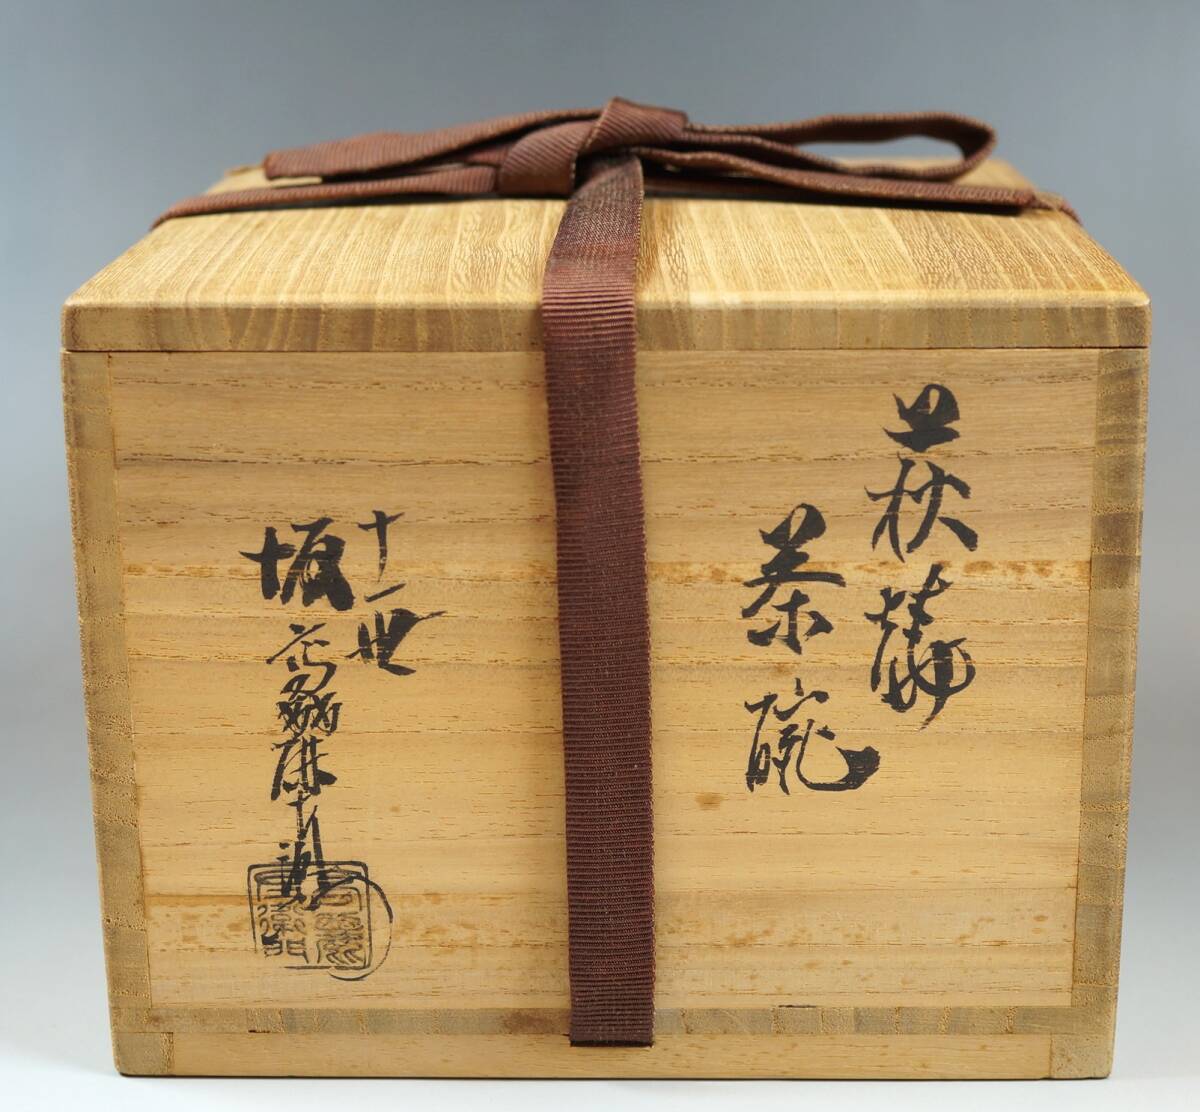 萩燒
茶碗
十一世
坂高麗左衛門